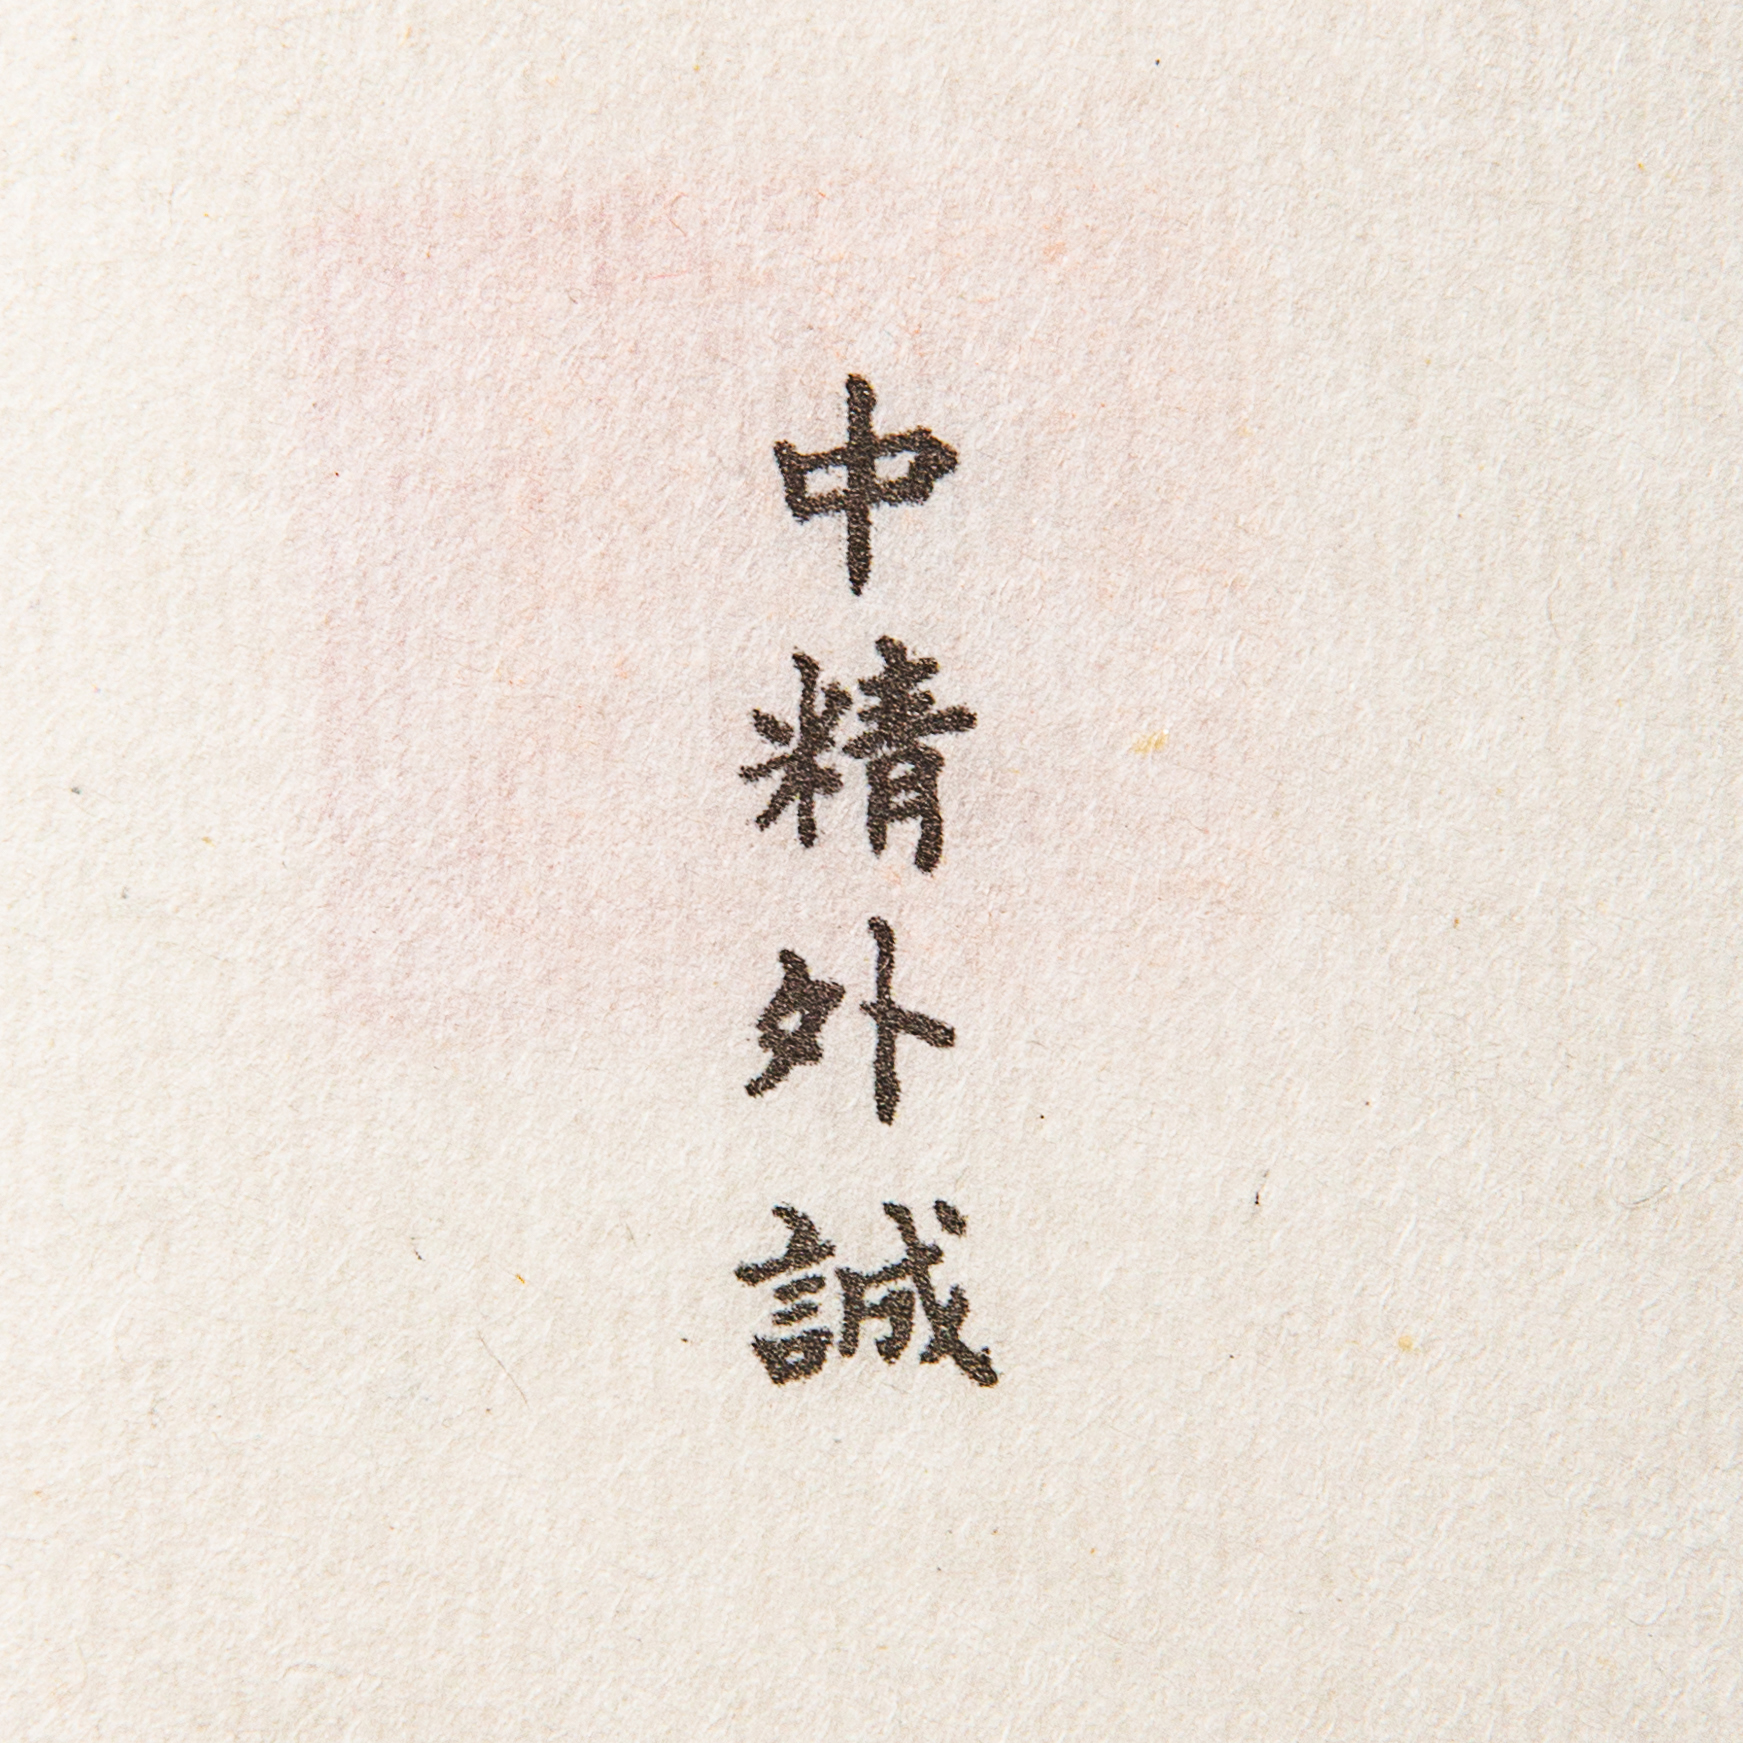 中精外誠